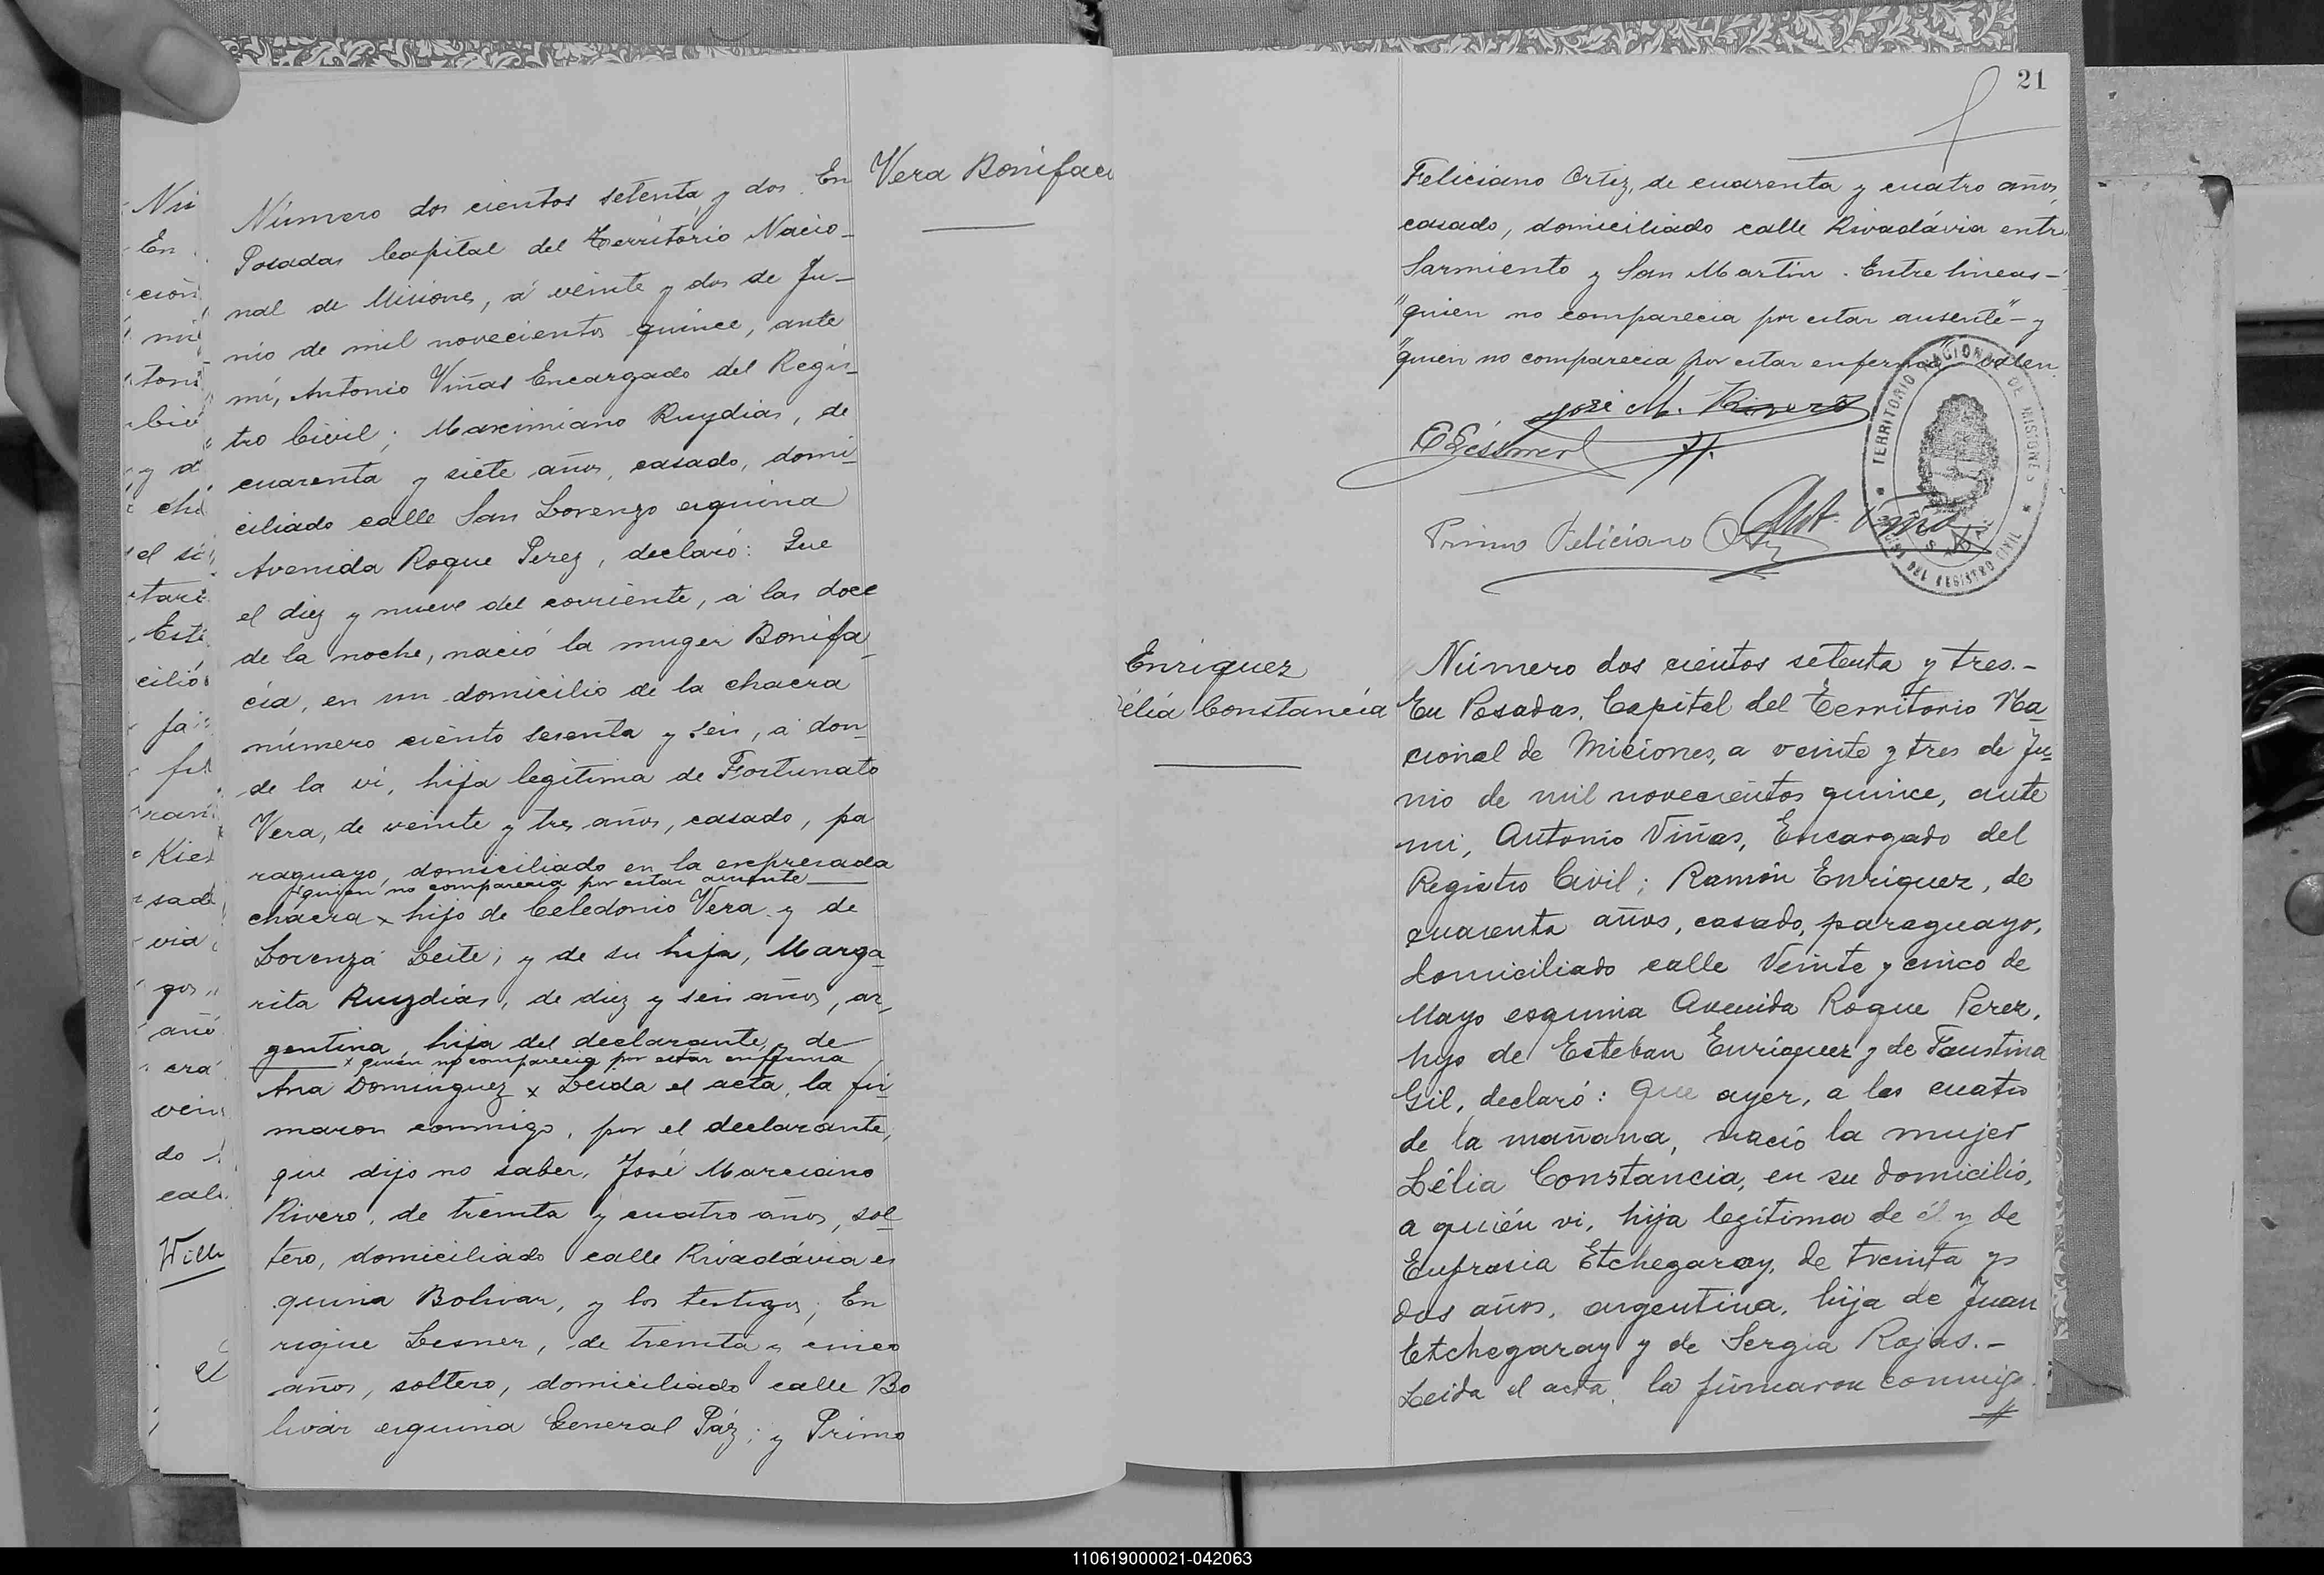 Vera Bonifac
Número dos cientos setenta y dos. En
Posadas Capital del Território Nacio-
nal de Misiones, á veinte y dos de Ju-
nio de mil novecientos quince, ante
mí, Antonio Viñas Encargado del Regis-
tro Civil; Maximiano Ruydias, de
cuarenta y siete años, casado, domi-
ciliado calle San Lorenzo esquina
Avenida Roque Perez, declaró: Que
el diez y nueve del corriente, á las doce
de la noche, nació la muger Bonifa-
cia, en un domicilio de la chacra
número ciento sesenta y seis, a don-
de la ví, hija legítima de Fortunato
Vera, de veinte y tres años, casado, pa
raguayo, domiciliado en la expresada
quien no comparecia por estar ausente
chacra x hijo de Celedonio Vera y de
Lorenza Leite; y de su hija, Marga-
rita Ruydias, de diez y seis años, ar-
gentina, hija del declarante, y de
x quien no comparecia por estar enferma
Ana Dominguez x Leida el acta, la fir-
maron conmigo, por el declarante,
que dijo no saber, José Marciano
Rivero, de treinta y cuatro años, sol-
tero, domiciliado calle Rivadávia es
quina Bolivar, y los testigos; En
rique Lesner, de treinta y cinco
años, soltero, domiciliado calle Bo
livar esquina General Páz; y Primo
21
Feliciano Ortiz, de cuarenta y cuatro años,
casado, domiciliado calle Rivadávia entre
Sarmiento y San Martin. Entre lineas-
"quien no comparecia por estar ausente"- y
"quien no comparecia por estar enferma" valen
José M. Rivero
E Lesner
Ant. Viñas
Primo Feliciano Ortiz
TERRITORIO NACIONAL DE MISIONES
DEL REGISTRO CIVIL
POSADAS
Enriquez
Lélia Constancia
Número dos cientos setenta y tres.-
En Posadas, Capital del Territorio Na-
cional de Miciones, a veinte y tres de Ju-
nio de mil novecientos quince, ante
mi, Antonio Viñas, Encargado del
Registro Civil; Ramón Enriquez, de
cuarenta años, casado, paraguayo,
domiciliado calle Veinte y cinco de
Mayo esquina Avenida Roque Perez,
hijo de Esteban Enriquez y de Faustina
Gil, declaró: Que ayer, a las cuatro
de la mañana, nació la mujer
Lélia Constancia, en su domicilio,
a quién vi, hija legítima de él y de
Eufrasia Etchegaray, de treinta y
dos años, argentina, hija de Juan
Etchegaray y de Sergia Rojas.-
Leida el acta, la firmaron conmigo
110619000021-042063